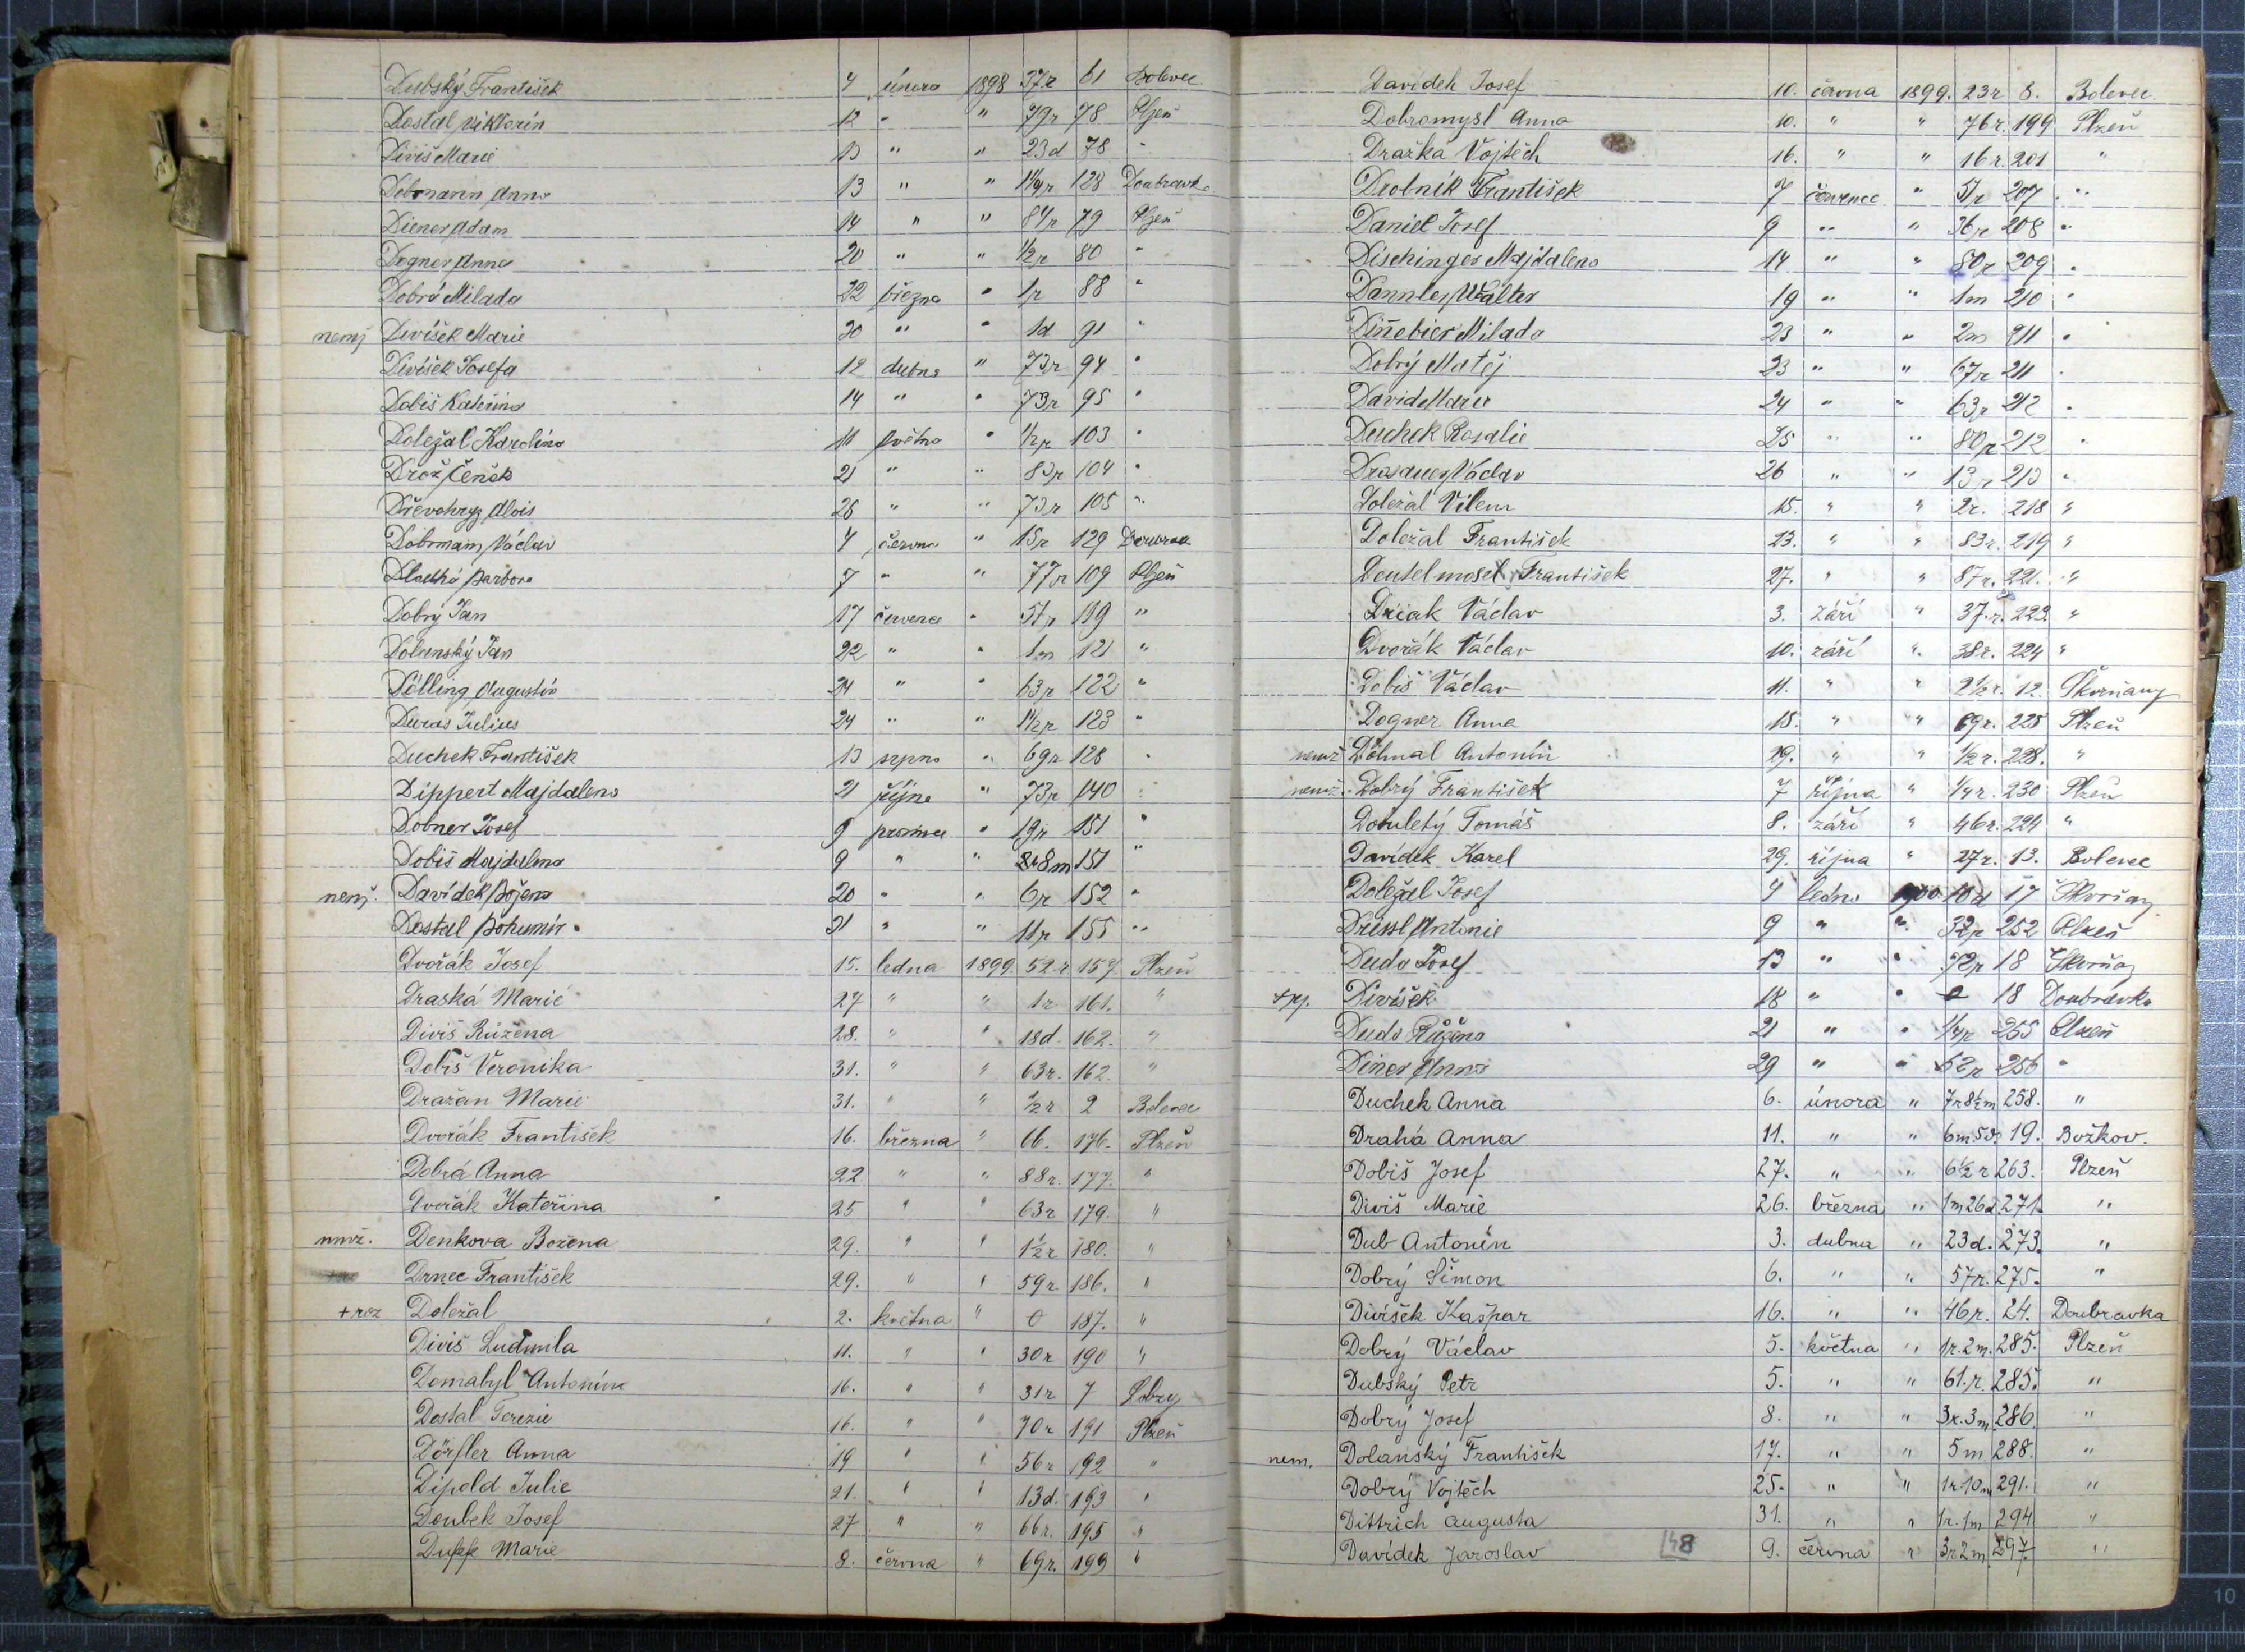 Dubský František 4 února 1898 37r 61 Bolevec
Dostal Viktorin 12 " " 79r 78 Plzeň
Diviš Marie 13 " " 23d 78 "
Dobmann Anna 13 " " 1/4r 128 Doubravka
Diener Adam 14 " " 84r 79 Plzeň
Dogner Anna 20 " " 1/2r 80 "
Dobrá Milada 22 března " 1r 88 "
nemj Divíšek Marie 30 " " 1d 91 "
Divíšek Josefa 12 dubna " 73r 94 "
Dobiš Kateřina 14 " " 73r 95 "
Doležal Karolína 11 května " 1/2r 103 "
Drož Čeněk 21 " " 83r 104 "
Dřevohryz Alois 28 " " 73r 105 "
Dobmann Václav 4 června " 15r 129
Dlouhá Barbora 7 " " 77r 109 Plzeň
Dobrý Jan 17 července " 57r 119 "
Dolanský Jan 22 " " 1m 121 "
Dölling Augustin 24 " " 63r 122 "
Duras Julius 24 " " 1 1/2r 123 "
Duchek František 13 srpna " 69r 128 "
Dippert Majdalena 21 října " 73r 140 "
Dobner Josef 9 prosince " 19r 151 "
Dobiš Majdalena 9 " " 8m 151 "
nemj. Davídek Božena 20 " " 6r 152 "
Dostal Bohumír 31 " " 11r 155 "
Dvořák Josef 15. ledna 1899 52r 157. Plzeň
Draská Marie 27 " " 1r 161. "
Diviš Růžena 28. " " 18d. 162. "
Dobiš Veronika 31. " " 63r. 162. "
Dražan Marie 31. " " 1/2r 2 Bolevec
Dvořák František 16. března " 66. 176. Plzeň
Dobrá Anna 22. " " 88r. 177. "
Dvořák Kateřina 25 " " 63r 179. "
nmž. Denkova Božena 29. " " 1 1/2r 180. "
Drnec František 29. " " 59r 186. "
+roz Doležal 2. května " 0 187. "
Diviš Ludmila 11. " " 30r 190 "
Domabyl Antonín 16. " " 31r 7 Lobzy
Dostal Terezie 16. " " 70r 191 Plzeň
Dörfler Anna 19 " " 56r 192 "
Dipold Julie 21. " " 13d. 193 "
Doubek Josef 27 " " 66r. 195 "
Marie 8. června " 69r. 199 "
Davídek Josef 10. června 1899. 23r 8. Bolevec
Dobromysl Anna 10. " " 76r. 199 Plzeň
Dražka Vojtěch 16. " " 16r. 201 "
Drobník František 7 července " 51r 207 "
Daniel Josef 9 " " 36r 208 "
Dischinger Majdalena 14 " " 80r 209 "
Dannler Walter 19 " " 1m 210 "
Diňebier Milada 23 " " 2m 211 "
Dobrý Matěj 23 " " 67r 211 "
David Marie 24 " " 63r 212 "
Duchek Rosalie 25 " " 80r 212 "
Václav 26 " " 13r 213 "
Doležal Vilem 15. " " 2r. 218 "
Doležal František 23. " " 83r. 219 "
Deutelmosel František 27. " " 87r. 221. "
Václav 3. září " 37.r. 223 "
Dvořák Václav 10. září " 38r. 224 "
Dobiš Václav 11. " " 2 1/2r. 12. Škvrňany
Dogner Anna 15. " " 69r. 225 Plzeň
nemž Dölmal Antonín 29. " " 1/2r. 228. "
nemž. Dobrý František 7 října " 1/4r. 230 Plzeň
Douletý Tomáš 8. září " 46r. 224 "
Davídek Karel 29. října " 27r. 13. Bolevec
Doležal Josef 4 ledna 1900 10d 17 Škvrňany
Antonie 9 " " 32r 252 Plzeň
Duda Josef 13 " " 72r 18 Škvrňany
+pp. Divíšek 18 " " 0 18 Doubravka
Duda Růžena 21 " " 1/4r 255 Plzeň
Diner Anna 29 " " 62r 256 "
Duchek Anna 6. února " 7r 8 1/2m 258. "
Drahá Anna 11. " " 6m.5d. 19. Božkov.
Dobiš Josef 27. " " 6 1/2r 263. Plzeň
Diviš Marie 26. března " 1m26d. 271. "
Dub Antonín 3. dubna " 23d. 273. "
Dobrý Šimon 6. " " 57r. 275. "
Divíšek Kašpar 16. " " 46r. 24. Doubravka
Dobrý Václav 5. května " 1r.2m. 285. Plzeň
Dubský Petr 5. " " 61.r. 285. "
Dobrý Josef 8. " " 3r.3m. 286 "
nem. Dolanský František 17. " " 5m. 288. "
Dobrý Vojtěch 25. " " 1r.10m 291. "
Dittrich Augusta 31. " " 1r.1m 294 "
Davídek Jaroslav 9. června " 3r2m. 297. "
148
10